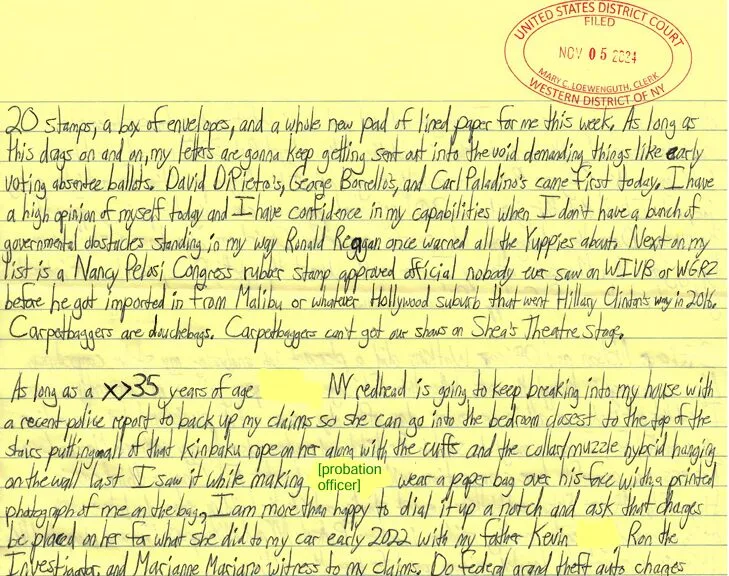 UNITED STATES DISTRICT COURT
FILED
NOV 05 2024
MARY C. LOEWENGUTH, CLERK
WESTERN DISTRICT OF NY
20 stamps, a box of envelopes, and a whole new pad of lined paper for me this week. As long as
this drags on and on, my letters are gonna keep getting sent out into the void demanding things like early
voting absentee ballots. David DiPietro's, George Borrello's, and Carl Paladino's came first today. I have
a high opinion of myself today and I have confidence in my capabilities when I don't have a bunch of
governmental obstacles standing in my way Ronald Reagan once warned all the Yuppies about. Next on my
list is a Nancy Pelosi Congress rubber stamp approved official nobody ever saw on WIVB or WGRZ
before he got imported in from Malibu or whatever Hollywood suburb that went Hillary Clinton's way in 2016.
Carpetbaggers are douchebags. Carpetbaggers can't get our shows on Shea's Theatre Stage.
As long as a x>35 years of age NY redhead is going to keep breaking into my house with
a recent police report to back up my claims so she can go into the bedroom closest to the top of the
stairs putting all of that Kinbaku rope on her along with the cuffs and the collar/muzzle hybrid hanging
on the wall last I saw it while making [probation officer] wear a paper bag over his face with a printed
photograph of me on the bag, I am more than happy to dial it up a notch and ask that charges
be placed on her for what she did to my car early 2022 with my father Kevin Ron the
Investigator, and Marianne Mariano witness to my claims. Do federal grand theft auto charges